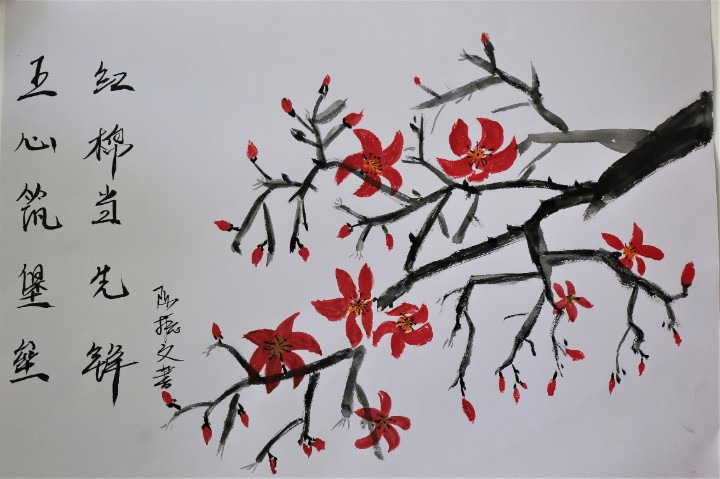 红棉当先锋
五心筑堡垒
陈振文書